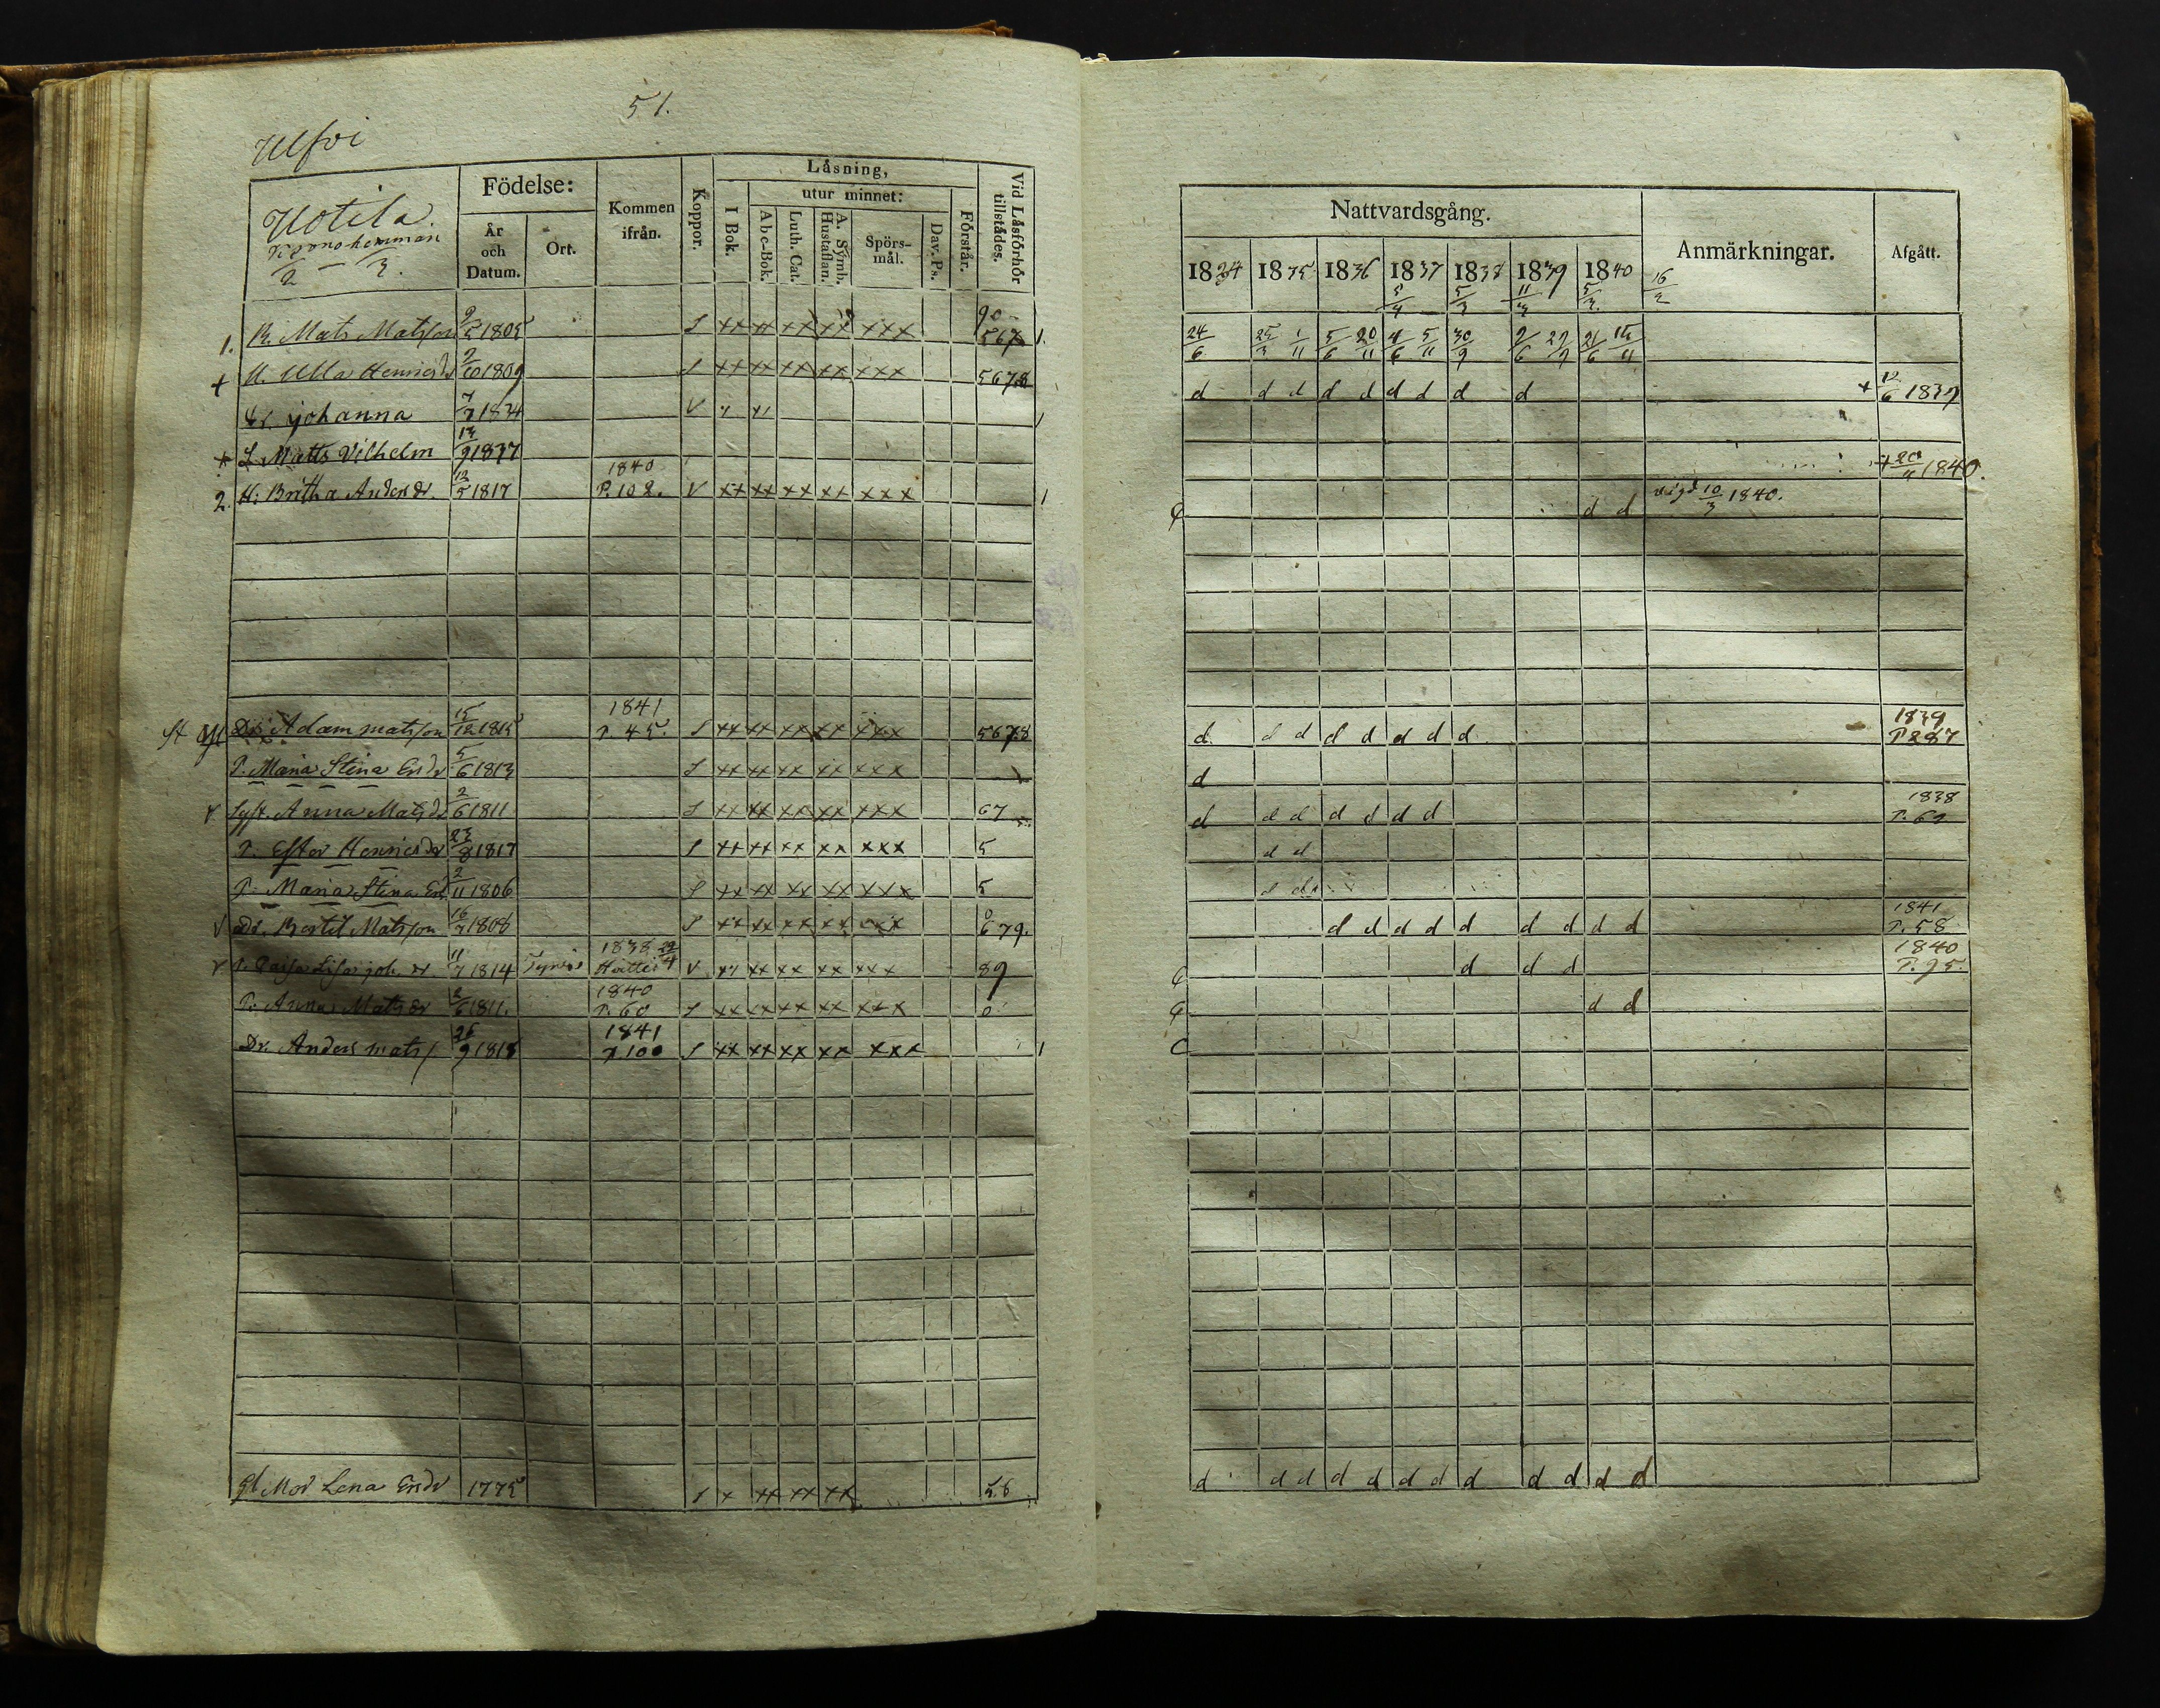 51.
Ulfvi
Uotila
Kronohemman
2 — 3.
Födelse:
År och Datum.
Ort.
Kommen ifrån.
Koppor.
Låsning,
I Bok.
utur minnet:
Abc-Bok.
Luth. Cat.
A. Symb. Hustaflan.
Spörs-mål.
Dav. Ps.
Förstår.
Vid Låsförhör tillstådes.
1. B. Mats Matsson 9/5 1805 S xx xx xx xx xxx 90 567 1.
+ H. Ulla Henricsd 2/10 1809 S xx xx xx xx xxx 5678
dr Johanna 7/7 1834 V
+ S. Matts Vilhelm 13/9 1837
2. H: Britha Anders dr 12/5 1817 1840 P. 102. V xx xx xx xx xxx 1
Dr. Adam matsson 15/12 1815 1841 P. 45. S xx xx xx xx xxx 5678
P. Maria Stina Ersdr 5/6 1813 S xx xx xx xx xxx
Syst. Anna Matsdr 2/6 1811 S xx xx xx xx xxx 67
P. Ester Henricsdr 23/8 1817 S xx xx xx xx xxx 5
P. Maria Stina Er 2/11 1806 S xx xx xx xx xxx 5
Dr. Bertil Matsson 16/7 1808 S xx xx xx xx xxx 0 679.
P. Caisa Lisa joh. dr 11/7 1814 1838 V xx xx xx xx xxx 89
P. Anna Matsdr 2/6 1811. 1840 P. 60 S xx xx xx xx xxx 0
Dr. Anders mats 1841 P. 100 S xx xx xx xx xxx 1
Gl Mor Lena Ersdr 1775 S x xx xx xx 58
Nattvardsgång.
Anmärkningar.
Afgått.
1834 1835 1836 1837 1838 1839 1840
5/4 5/3 11/3 5/3 16/2
24/6 25/3 1/11 5/6 20/11 4/6 5/11 30/9 2/6 29/9 21/6 15/11
d d d d d d d d d + 12/6 1839
+ 20/4 1840.
d d vigd 10/3 1840.
d d d d d d d d 1839 P 287
d
d d d d d d d 1838
d d
d d
d d d d d d d d d 1841 P. 58
d d d 1840 P. 95.
d d
d d d d d d d d d d d d